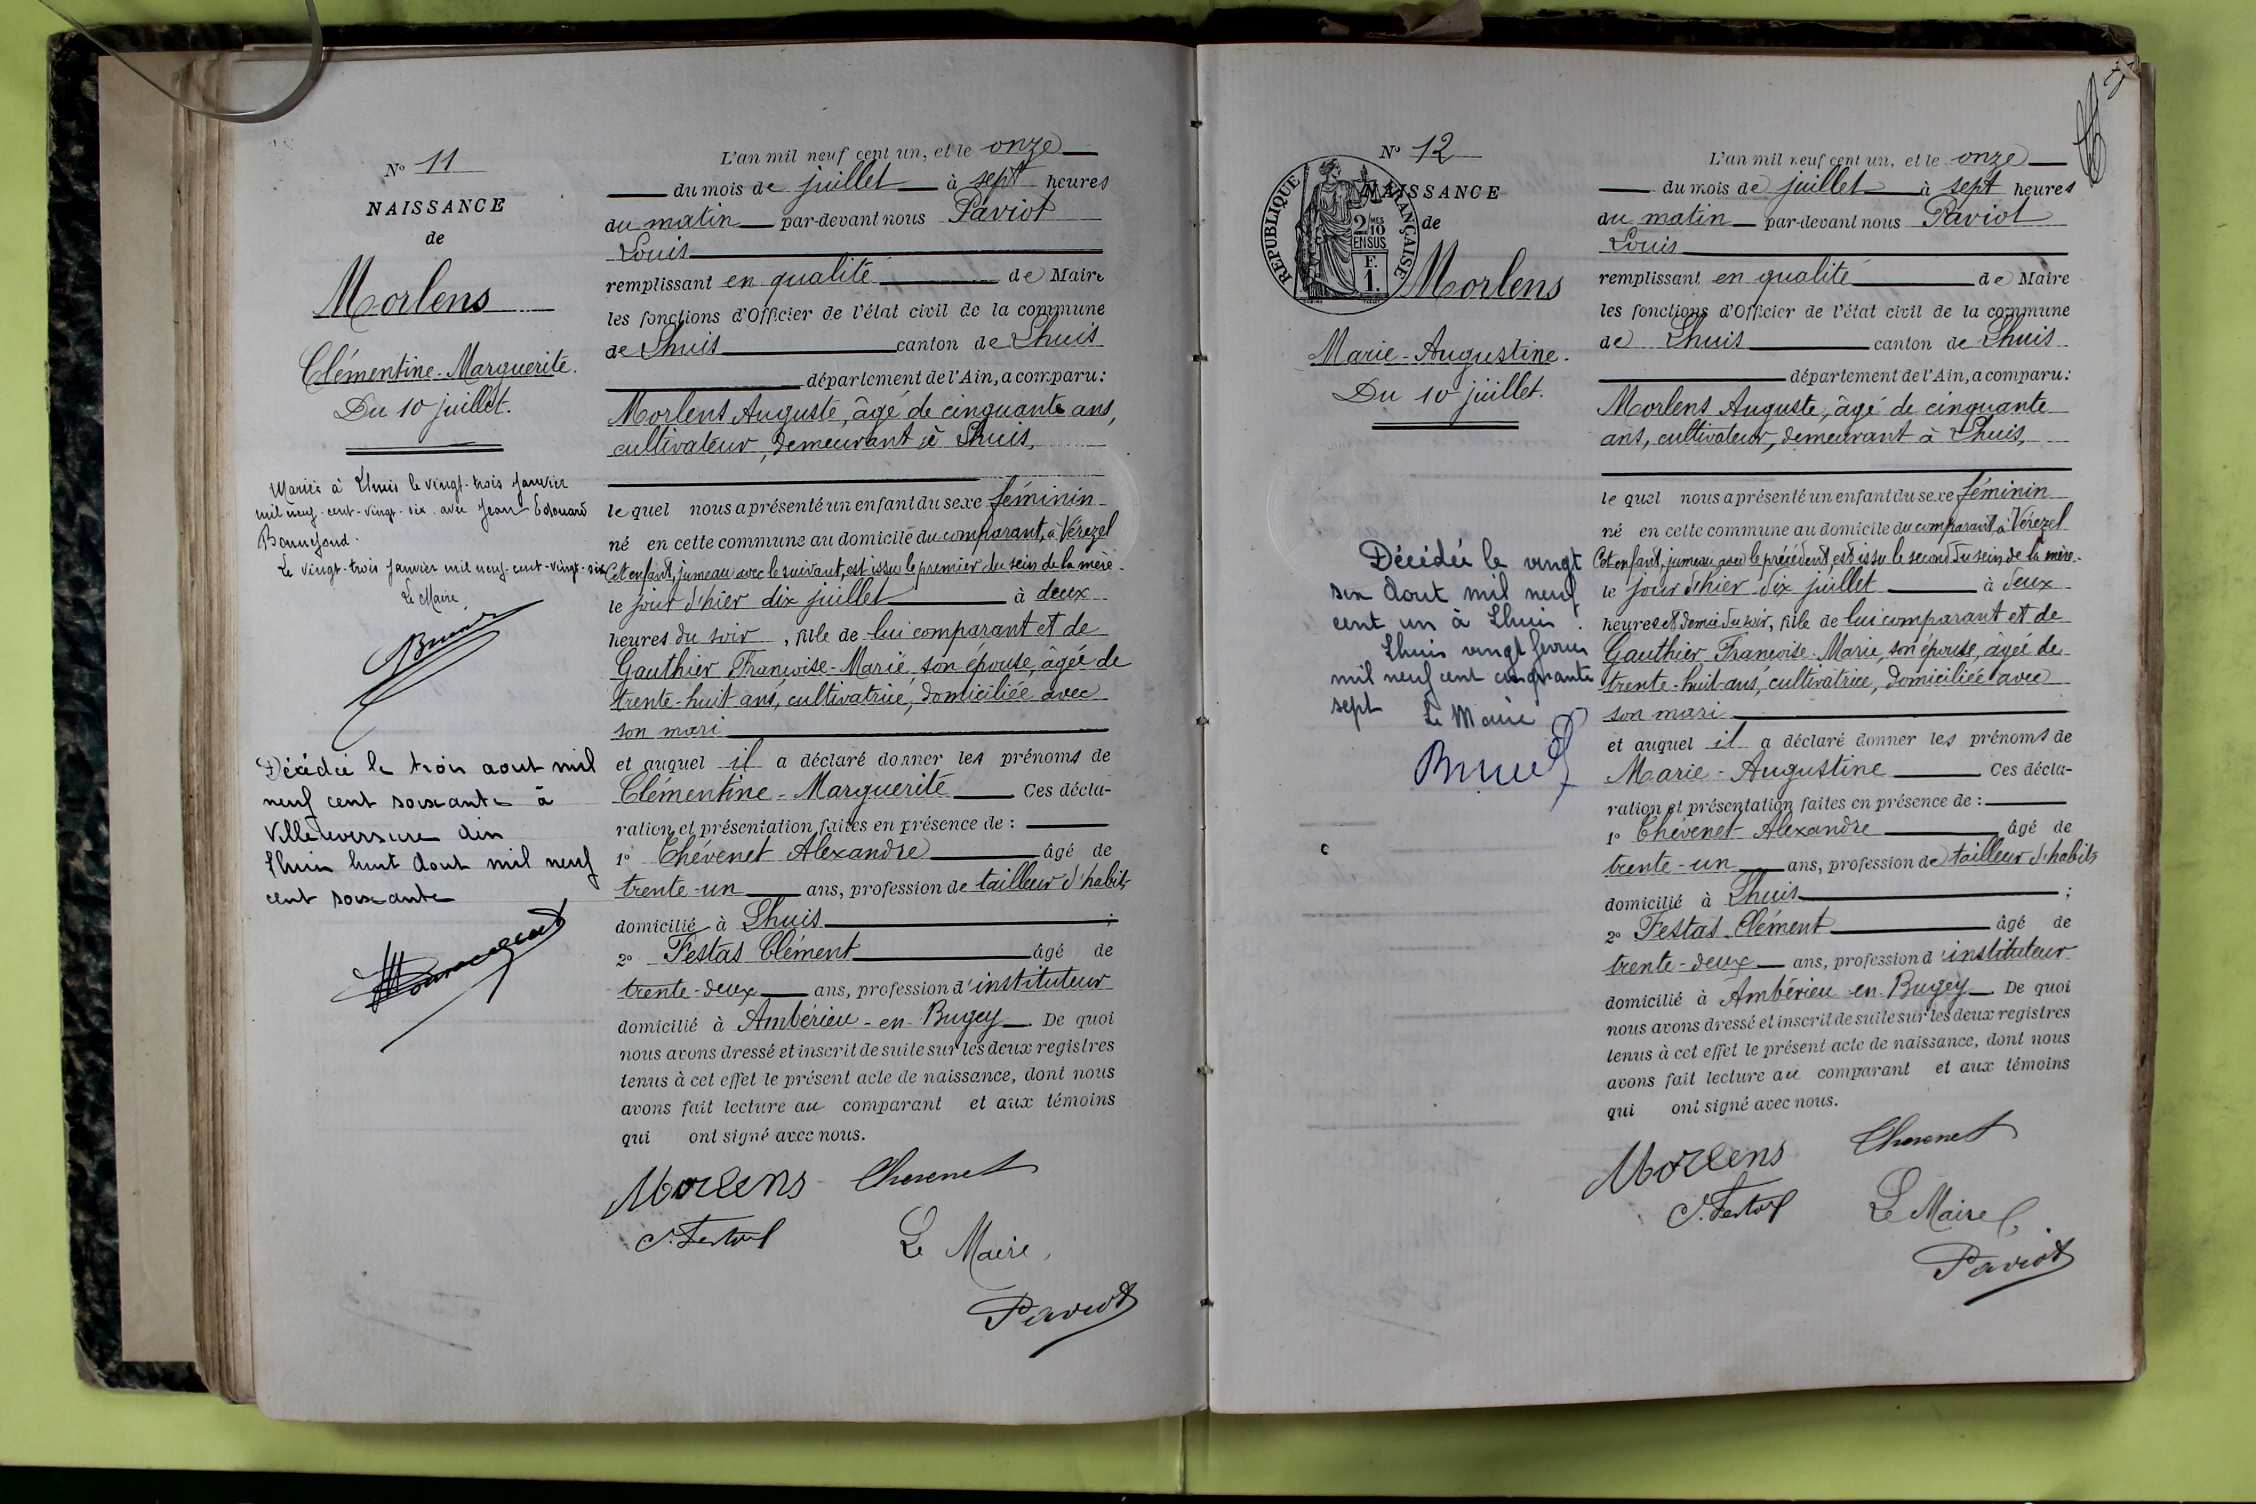 N° 11
NAISSANCE
de
Morlens
Clémentine-Marguerite.
Du 10 juillet.
Mariée à Lhuis le vingt-trois Janvier
mil neuf-cent-vingt-six avec Jean Edouard
Bonnefond.
Le vingt-trois janvier mil neuf-cent-vingt-six
Le Maire
Décédée le trois aout mil
neuf cent soixante à
Villereversure Ain
Lhuis huit Aout mil neuf
cent soixante
L'an mil neuf cent un, et le onze
du mois de juillet à sept heures
du matin par-devant nous Paviot
Louis
remplissant en qualité de Maire
les fonctions d'Officier de l'état civil de la commune
de Lhuis canton de Lhuis
département de l'Ain, a comparu:
Morlens Auguste, âgé de cinquante ans,
cultivateur, demeurant à Lhuis,
le quel nous a présenté un enfant du sexe féminin
né en cette commune au domicile du comparant, à Vérezel
Cet enfant, jumeau avec le suivant, est issu le premier du sein de la mère.
le jour d'hier dix juillet à deux
heures du soir, fille de lui comparant et de
Gauthier Françoise-Marie, son épouse, âgée de
trente-huit ans, cultivatrice, domiciliée avec
son mari
et auquel il a déclaré donner les prénoms de
Clémentine-Marguerite Ces décla-
ration et présentation faites en présence de :
1° Chévenet Alexandre âgé de
trente-un ans, profession de tailleur d'habits
domicilié à Lhuis ;
2° Festas Clément âgé de
trente-deux ans, profession d'instituteur
domicilié à Ambérieu-en-Bugey. De quoi
nous avons dressé et inscrit de suite sur les deux registres
tenus à cet effet le présent acte de naissance, dont nous
avons fait lecture au comparant et aux témoins
qui ont signé avec nous.
Morlens Chevenet
C. Festas Le Maire,
Paviot
N° 12
NAISSANCE
de
RÉPUBLIQUE FRANÇAISE
2/10 MES
EN SUS
F.
1.
Morlens
Marie-Augustine.
Du 10 juillet.
Décédée le vingt
six Aout mil neuf
cent un à Lhuis.
Lhuis vingt février
mil neuf cent cinquante
sept Le Maire
L'an mil neuf cent un, et le onze
du mois de juillet à sept heures
du matin par-devant nous Paviot
Louis
remplissant en qualité de Maire
les fonctions d'Officier de l'état civil de la commune
de Lhuis canton de Lhuis
département de l'Ain, a comparu:
Morlens Auguste, âgé de cinquante
ans, cultivateur, demeurant à Lhuis,
le quel nous a présenté un enfant du sexe féminin
né en cette commune au domicile du comparant à Vérezel
Cet enfant, jumeau avec le précédent, est issu le second du sein de la mère.
le jour d'hier dix juillet à deux
heures et demie du soir, fille de lui comparant et de
Gauthier Françoise-Marie, son épouse, âgée de
trente-huit ans, cultivatrice, domiciliée avec
son mari
et auquel il a déclaré donner les prénoms de
Marie-Augustine Ces décla-
ration et présentation faites en présence de :
1° Chévenet Alexandre âgé de
trente-un ans, profession de tailleur d'habits
domicilié à Lhuis ;
2° Festas Clément âgé de
trente-deux ans, profession d'instituteur
domicilié à Ambérieu-en-Bugey. De quoi
nous avons dressé et inscrit de suite sur les deux registres
tenus à cet effet le présent acte de naissance, dont nous
avons fait lecture au comparant et aux témoins
qui ont signé avec nous.
Morlens Chevenet
C. Festas Le Maire,
Paviot